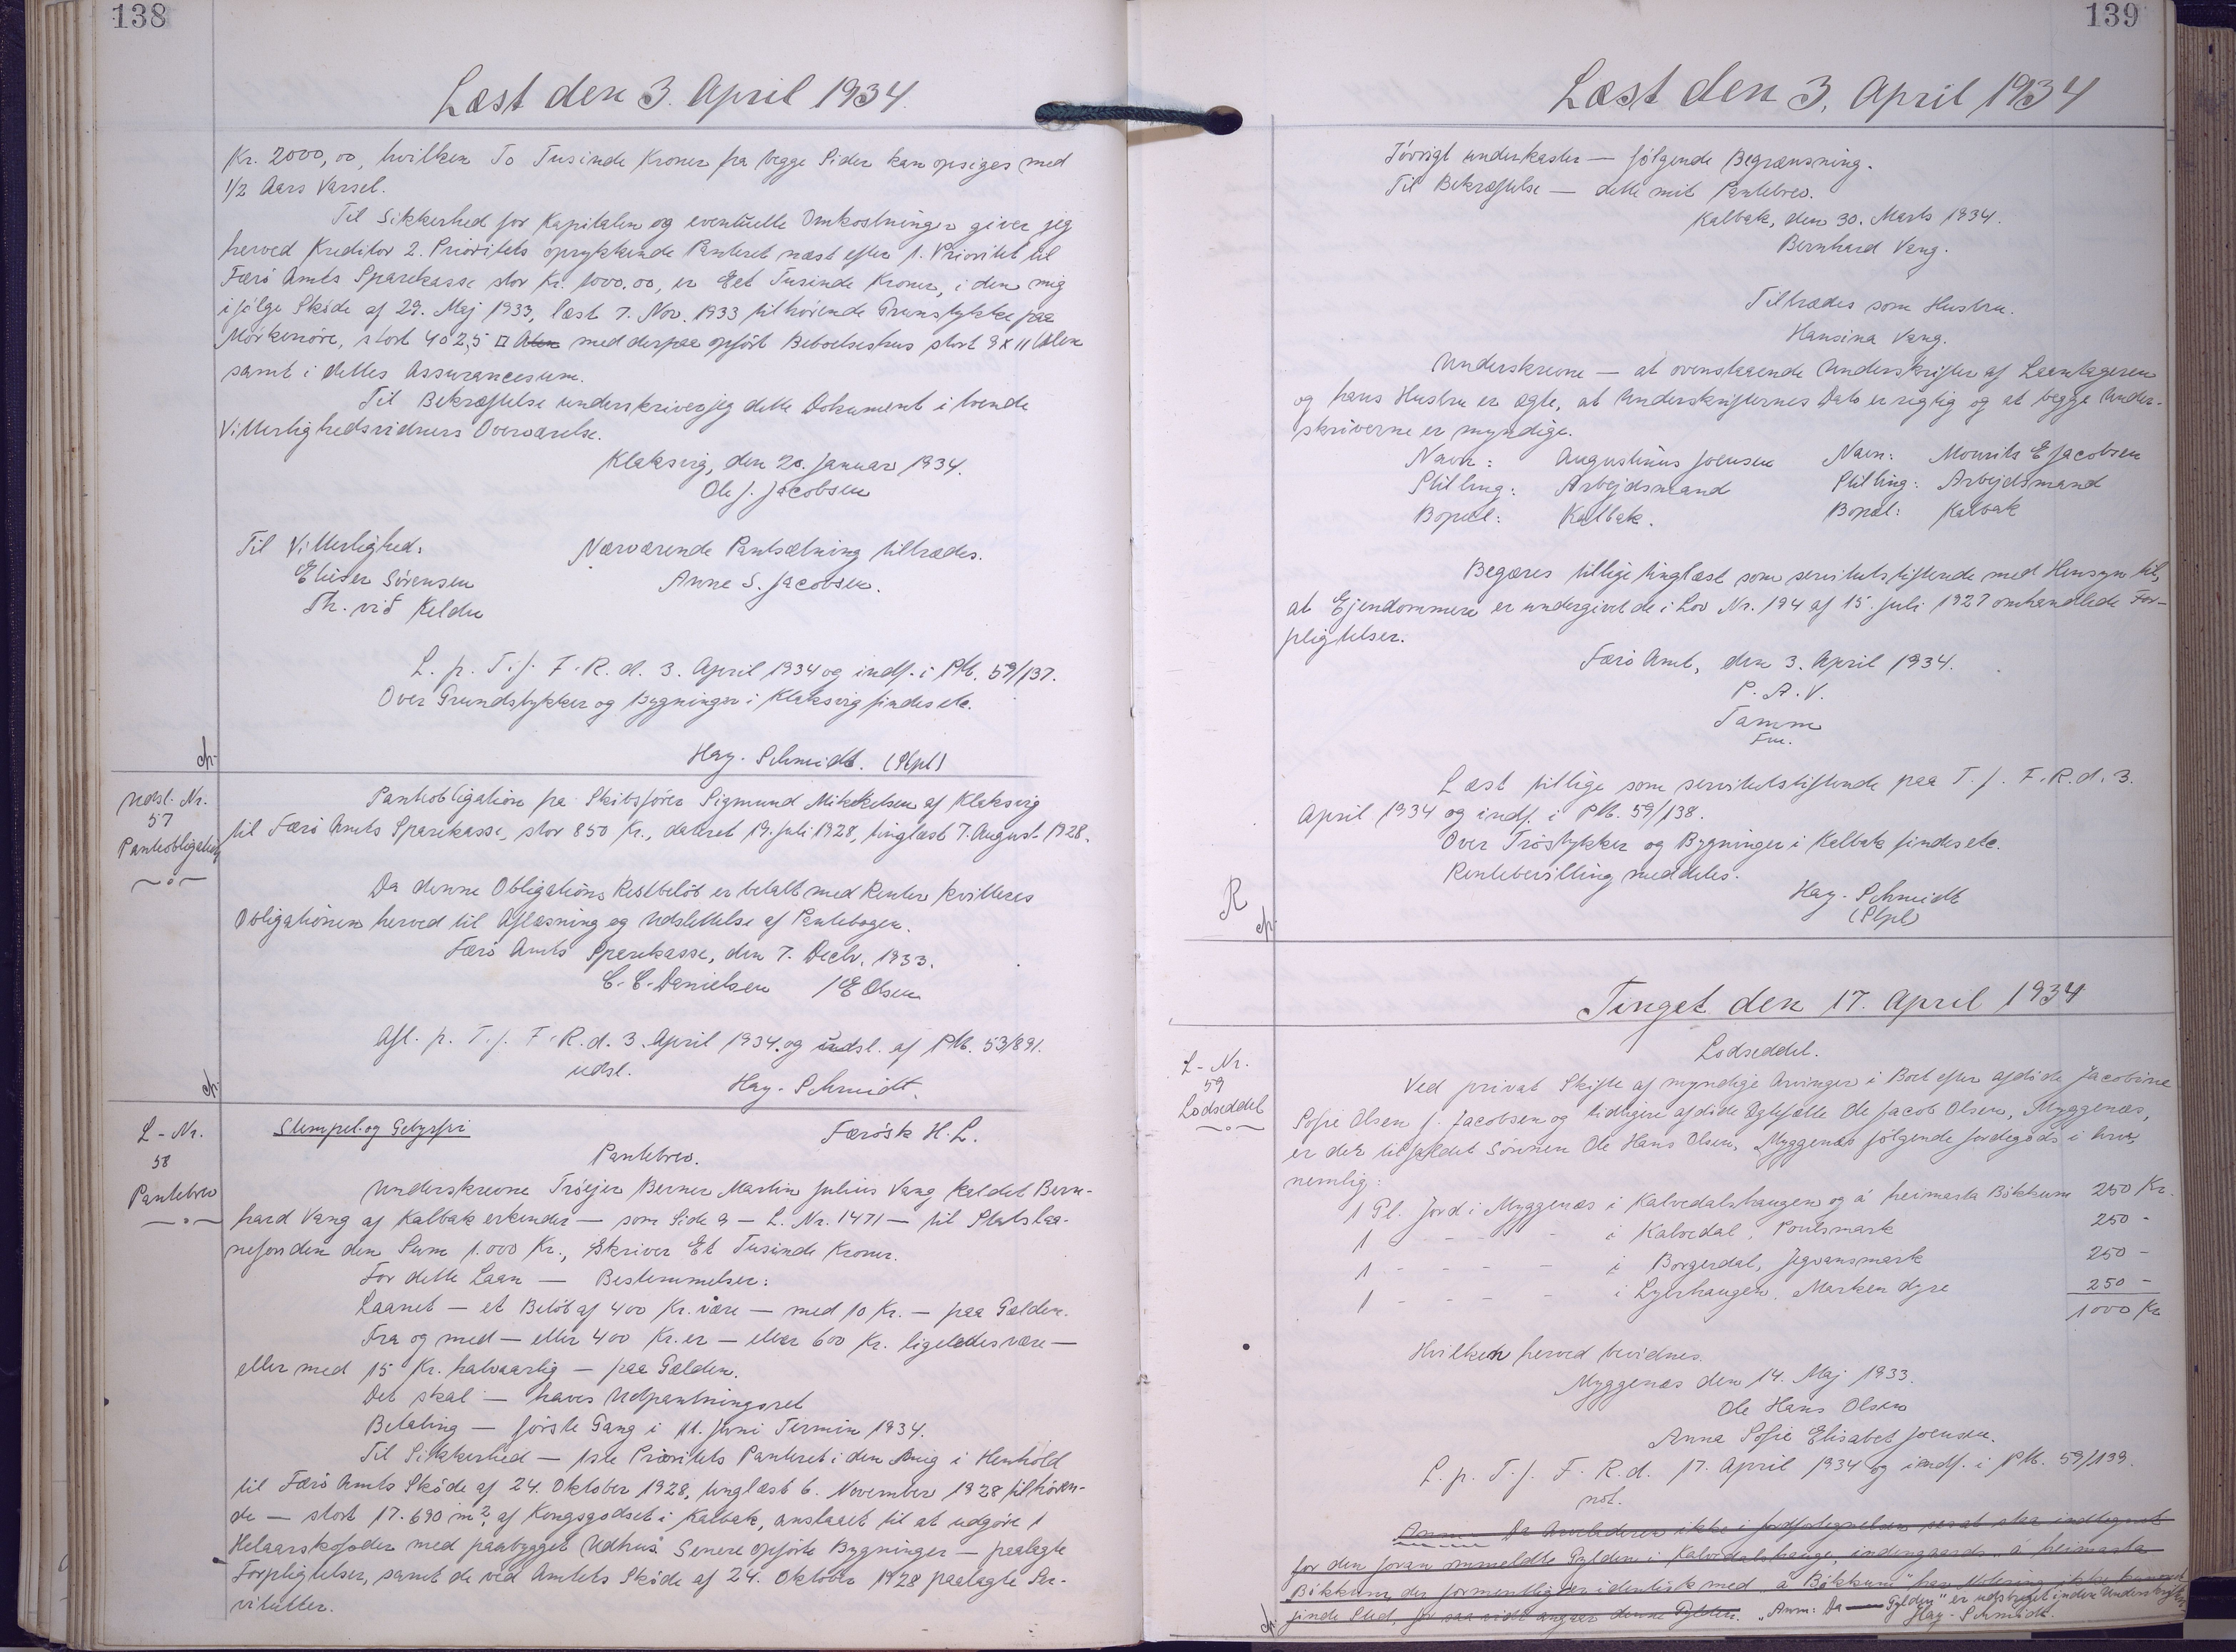 138
Læst den 3. April 1934.
Kr. 2000,00, hvilken To Tusinde Kroner fra begge Sider kan opsiges med
1/2 Aars Varsel.
Til Sikkerhed for Kapitalen og eventuelle Omkostninger giver jeg
herved Kreditor 2. Prioritets oprykkende Panteret næst efter 1. Prioritet til
Færø Amts Sparekasse stor Kr. 1000,00, er Eet Tusinde Kroner, i den mig
ifølge Skøde af 29. Maj 1933, læst 7. Nov. 1933 tilhørende Grunstykke paa
Mørkenøre, stort 402,5 □ Alen med derpaa opført Beboelseshus stort 9 x 11 Alen
samt i dettes Assurancesum.
Til Bekræftelse underskriver jeg dette Dokument i tvende
Vitterlighedsvidners Overværelse.
Klaksvig, den 20. Januar 1934.
Ole J. Jacobsen
Til Vitterlighed:
Nærværende Pantsætning tiltrædes.
Elieser Sørensen
Anne S. Jacobsen.
Th. við Keldu
L. p. T. f. F. R. d. 3. April 1934 og indf. i PM. 59/137.
Over Grundstykker og Bygninger i Klaksvig findes etc.
Hay-Schmidt. (Stpl)
Udsl. Nr.
57
Panteobligation
Panteobligation fra Skibsfører Sigmund Mikkelsen af Klaksvig
til Færø Amts Sparekasse, stor 850 Kr., dateret 19. Juli 1928, tinglæst 7. August 1928.
Da denne Obligations Restbeløb er betalt med Renter kvitteres
Obligationen herved til Aflæsning og Udslettelse af Pantebogen.
Færø Amts Sparekasse, den 7. Decbr. 1933.
C. C. Danielsen / E Olsen
Afl. p. T. f. F. R. d. 3. April 1934 og udsl. af PM. 53/891.
udsl.
Hay-Schmidt.
L-Nr.
58
Pantebrev
Stempel- og Gebyrfri
Færøsk H. L.
Pantebrev.
Underskrevne Trøejer Berner Martin Julius Vang kaldet Bern-
hard Vang af Kalbak erkender — som Side 9 — L. Nr. 1471 — til Statslaa-
nefonden den Sum 1.000 Kr., Skriver Et Tusinde Kroner.
For dette Laan — Bestemmelser:
Laanet — et Beløb af 400 Kr. være — med 10 Kr. — paa Gælden.
Fra og med — eller 400 Kr. er — eller 600 Kr. ligeledes være —
eller med 15 Kr. halvaarlig — paa Gælden.
Det skal — haves Udpantningsret
Betaling — første Gang i 11. Juni Termin 1934.
Til Sikkerhed — 1ste Prioritets Panteret i den mig i Henhold
til Færø Amts Skøde af 24. Oktober 1928, tinglæst 6. November 1928 tilhøren-
de — stort 17.690 m², af Kongsgodset i Kalbak, anslaaet til at udgøre 1
Helaarskofoder med paabygget Udhus. Senere opførte Bygninger — paalagte
Forpligtelser, samt de ved Amtets Skøde af 24. Oktober 1928 paalagte Ser-
vitutter.
139
Læst den 3. April 1934
Iøvrigt underkaster — følgende Begrænsning.
Til Bekræftelse — dette mit Pantebrev.
Kalbak, den 30. Marts 1934.
Bernhard Vang.
Tiltrædes som Hustru.
Hansina Vang.
Underskrevne — at ovenstaaende Underskrifter af Laantageren
og hans Hustru er ægte, at Underskrifternes Dato er rigtig og at begge Under-
skriverne er myndige.
Navn: Augustinus Joensen Navn: Mourits E Jacobsen
Stilling: Arbejdsmand Stilling: Arbejdsmand
Bopæl: Kalbak. Bopæl: Kalbak
Begæres tillige tinglæst som servitutstiftende med Hensyn til,
at Ejendommen er undergivet de i Lov Nr. 194 af 15. Juli 1927 omhandlede For-
pligtelser.
Færø Amt, den 3. April 1934.
P. A. V.
Tamm
Fm.
Læst tillige som servitutstiftende paa T. f. F. R. d. 3.
April 1934 og indf. i PM. 59/138.
Over Trøstykker og Bygninger i Kalbak findes etc.
Rentebevilling meddeles.
R
Hay-Schmidt
(Stpl)
Tinget den 17. April 1934
L-Nr.
59
Lodseddel
Lodseddel.
Ved privat Skifte af myndige Arvinger i Boet efter afdøde Jacobine
Sofie Olsen f. Jacobsen og tidligere afdøde Ægtefælle Ole Jacob Olsen, Myggenæs,
er der tilfaldet Sønnen Ole Hans Olsen, Myggenæs følgende Jordegods i Arv,
nemlig:
1 Gl. Jord i Myggenæs i Kalvedalshaugen og á heimasta Bökkum 250 Kr.
1 - - - - i Kalvedal, Poulsmark 250 -
1 - - - - i Borgerdal, Jegvansmark 250 -
1 - - - - i Lylshaugen, Marken dyre 250 -
1000 Kr
Hvilken herved bevidnes.
Myggenæs den 14. Maj 1933.
Ole Hans Olsen
Anna Sofie Elisabet Joensen.
L. p. T. f. F. R. d. 17. April 1934 og indf. i PM. 59/139.
not.
Anm: Da Arveladeren ikke i Jordfortegnelsen staa indtegnet
for den foran ommeldte Gylden i Kalvedalshauge, indengaards "á heimasta
Bökkum", der formentlig er identisk med "á Bökkum" har Notering ikke kunnet
finde Sted, for saa vidt angaar denne Gylden. "Anm: Da — Gylden" er udstreget inden Underskriften
Hay-Schmidt.